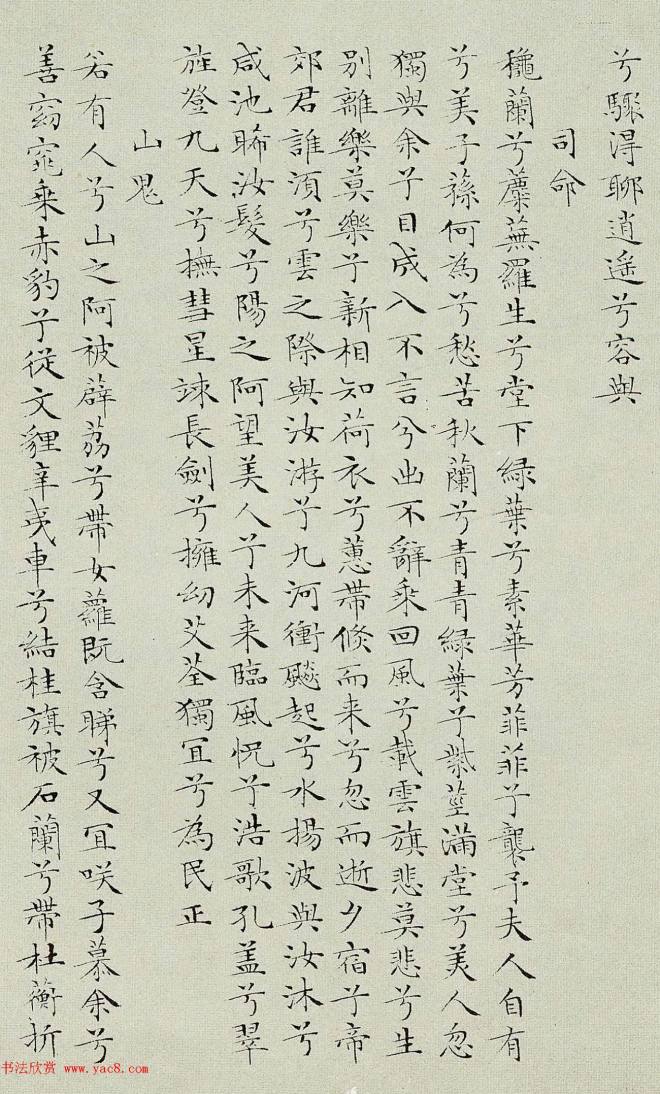 兮驟得聊逍遙兮容與
司命
穐蘭兮蘪蕪羅生兮堂下綠葉兮素華芳菲菲兮襲予夫人自有
兮美子蓀何為兮愁苦秋蘭兮青青綠葉兮紫莖滿堂兮美人忽
獨與余兮目成入不言兮出不辭乘回風兮載雲旗悲莫悲兮生
別離樂莫樂兮新相知荷衣兮蕙帶倏而来兮忽而逝夕宿兮帝
郊君誰湏兮雲之際與汝游兮九河衝飈起兮水揚波與汝沐兮
咸池晞汝髮兮陽之阿望美人兮未来臨風怳兮浩歌孔盖兮翠
旌登九天兮撫彗星竦長劍兮擁幼艾荃獨冝兮為民正
山鬼
若有人兮山之阿被薜荔兮帶女蘿既含睇兮又冝咲子慕余兮
善窈窕乘赤豹兮從文貍辛夷車兮結桂旗被石蘭兮帶杜蘅折
书法欣赏 www.yac8.com